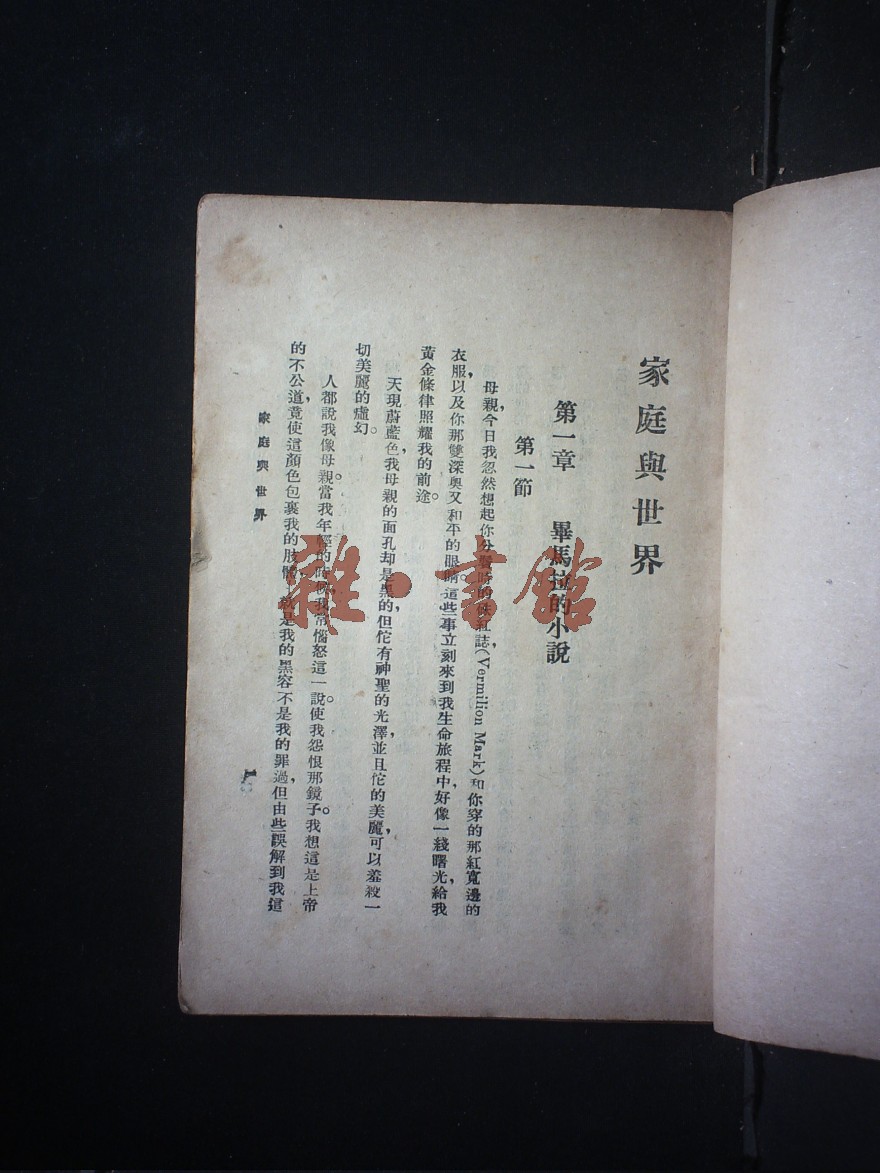 家庭與世界
第一章　畢馬拉的小說
第一節
母親，今日我忽然想起你分鬢時的硃紅誌，(Vermilion Mark)和你穿的那紅寬邊的
衣服，以及你那雙深奧又和平的眼睛這些事立刻來到我生命旅程中，好像一綫曙光，給我
黃金條律照耀我的前途。
天現蔚藍色，我母親的面孔却是黑的，但佗有神聖的光澤，並且佗的美麗，可以羞殺一
切美麗的虛幻。
人都說我像母親。當我年輕的時候，我常惱怒這一說。使我怨恨那鏡子。我想這是上帝
的不公道，竟使這顏色包裹我的肢體，就是我的黑容不是我的罪過，但由些誤解到我這
家庭與世界
一
雜·書館